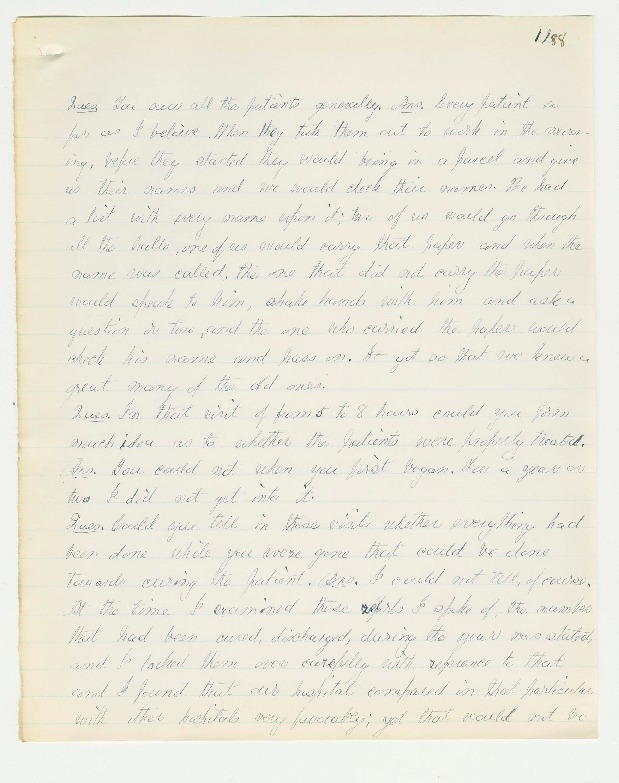 1188
Ques. You saw all the patients generally. Ans. Every patient so
far as I believe. When they took them out to work in the morn-
ing, before they started they would bring in a parcel and give
us their names and we would check their names. We had
a list with every name upon it; two of us would go through
all the halls, one of us would carry that paper and when the
name was called, the one that did not carry the paper
would speak to him, shake hands with him and ask a
question or two, and the one who carried the papers would
check his name and pass on. It got so that we knew a
great many of the old ones.
Ques. In that visit of from 5 to 8 hours could you form
much idea as to whether the patients were properly treated.
Ans. You could not when you first began. For a year or
two I did not get into it.
Ques. Could you tell in those visits whether everything had
been done while you were gone that could be done
towards curing the patient. Ans. I could not tell, of course.
At the time I examined those reports I spoke of, the number
that had been cured, discharged, during the year was stated,
and I looked them over carefully with reference to that
and I found that our hospital compared in that particular
with other hospitals very favorably; yet that would not be